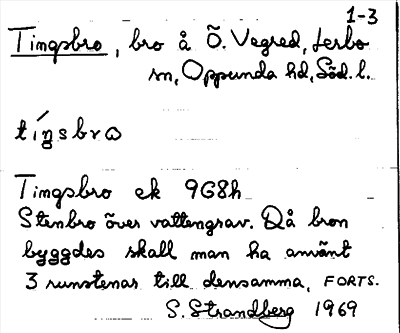 1-3
Tingsbro, bro å Ö. Vegred, Jerbo
sn, Oppunda hd, Söd. l.
tíŋsbrω
Tingsbro ek 9G8h
Stenbro över vattengrav. Då bron
byggdes skall man ha använt
3 runstenar till densamma. FORTS.
S. Strandberg 1969